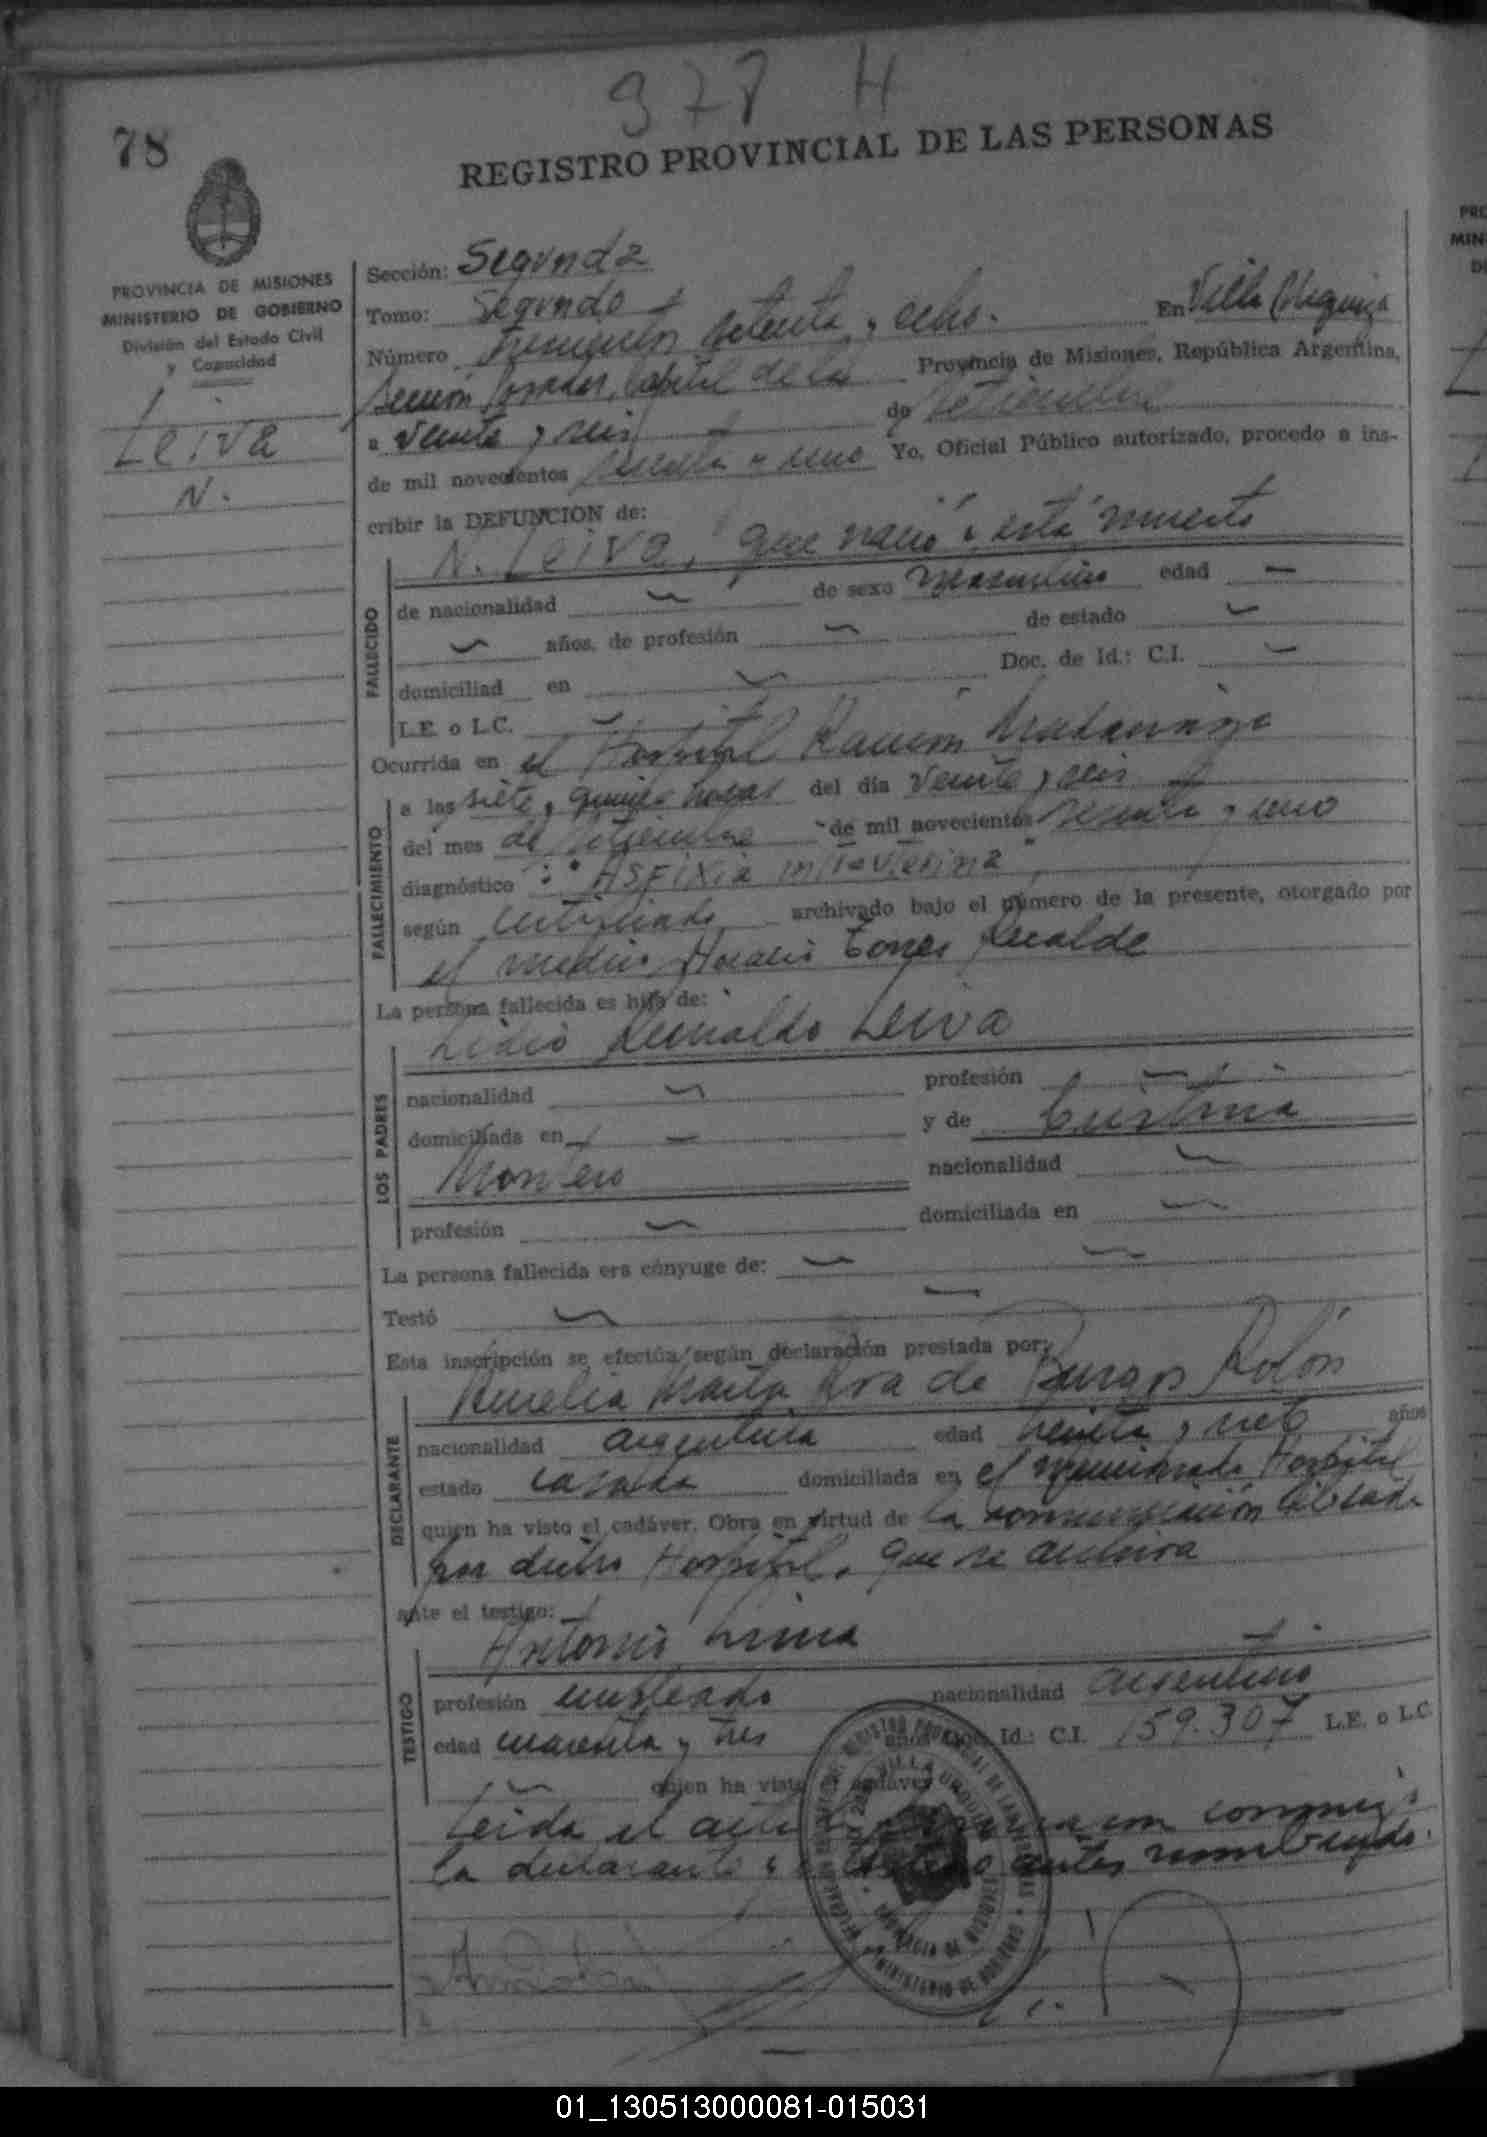 378 H
78
REGISTRO PROVINCIAL DE LAS PERSONAS
PROVINCIA DE MISIONES
MINISTERIO DE GOBIERNO
División del Estado Civil
y Capacidad
Leiva
N.
Sección: Segunda
Tomo: Segundo
Número setenta y ocho. En Villa Urquiza
Sección Posadas, Capital de la Provincia de Misiones, República Argentina,
a veinte y seis de Setiembre
de mil novecientos sesenta y uno Yo, Oficial Público autorizado, procedo a ins-
cribir la DEFUNCION de:
N. Leiva, que nació "está muerto
FALLECIDO
de nacionalidad — de sexo masculino edad —
— años, de profesión — de estado —
domiciliad en — Doc. de Id.: C.I. —
L.E. o L.C. —
Ocurrida en el Hospital Ramón Madariaga
FALLECIMIENTO
a las siete y quince horas del día veinte y seis
del mes de Setiembre de mil novecientos sesenta y uno
diagnóstico : "Asfixia intrauterina"
según certificado archivado bajo el número de la presente, otorgado por
el médico Horacio Torres Recalde
La persona fallecida es hijo de:
LOS PADRES
Lidio Reinaldo Leiva
nacionalidad — profesión —
domiciliada en — y de Cristina
Montero nacionalidad —
profesión — domiciliada en —
La persona fallecida era cónyuge de: — —
Testó — —
Esta inscripción se efectúa según declaración prestada por:
DECLARANTE
Aurelia Marta Roa de Burgos Rolón
nacionalidad argentina edad treinta y siete años
estado casada domiciliada en el mencionado Hospital
quien ha visto el cadáver. Obra en virtud de la comunicación librada
por dicho Hospital, que se archiva
ante el testigo:
TESTIGO
Antonio Lima
profesión empleado nacionalidad argentino
edad cuarenta y tres años Doc. Id.: C.I. 159.307 L.E. o L.C.
— quien ha visto el cadáver
Leida el acta la firman conmigo
la declarante y el testigo antes nombrado.
REGISTRO PROVINCIAL DE LAS PERSONAS
VILLA URQUIZA
PROVINCIA DE MISIONES
MINISTERIO DE GOBIERNO
01_130513000081-015031